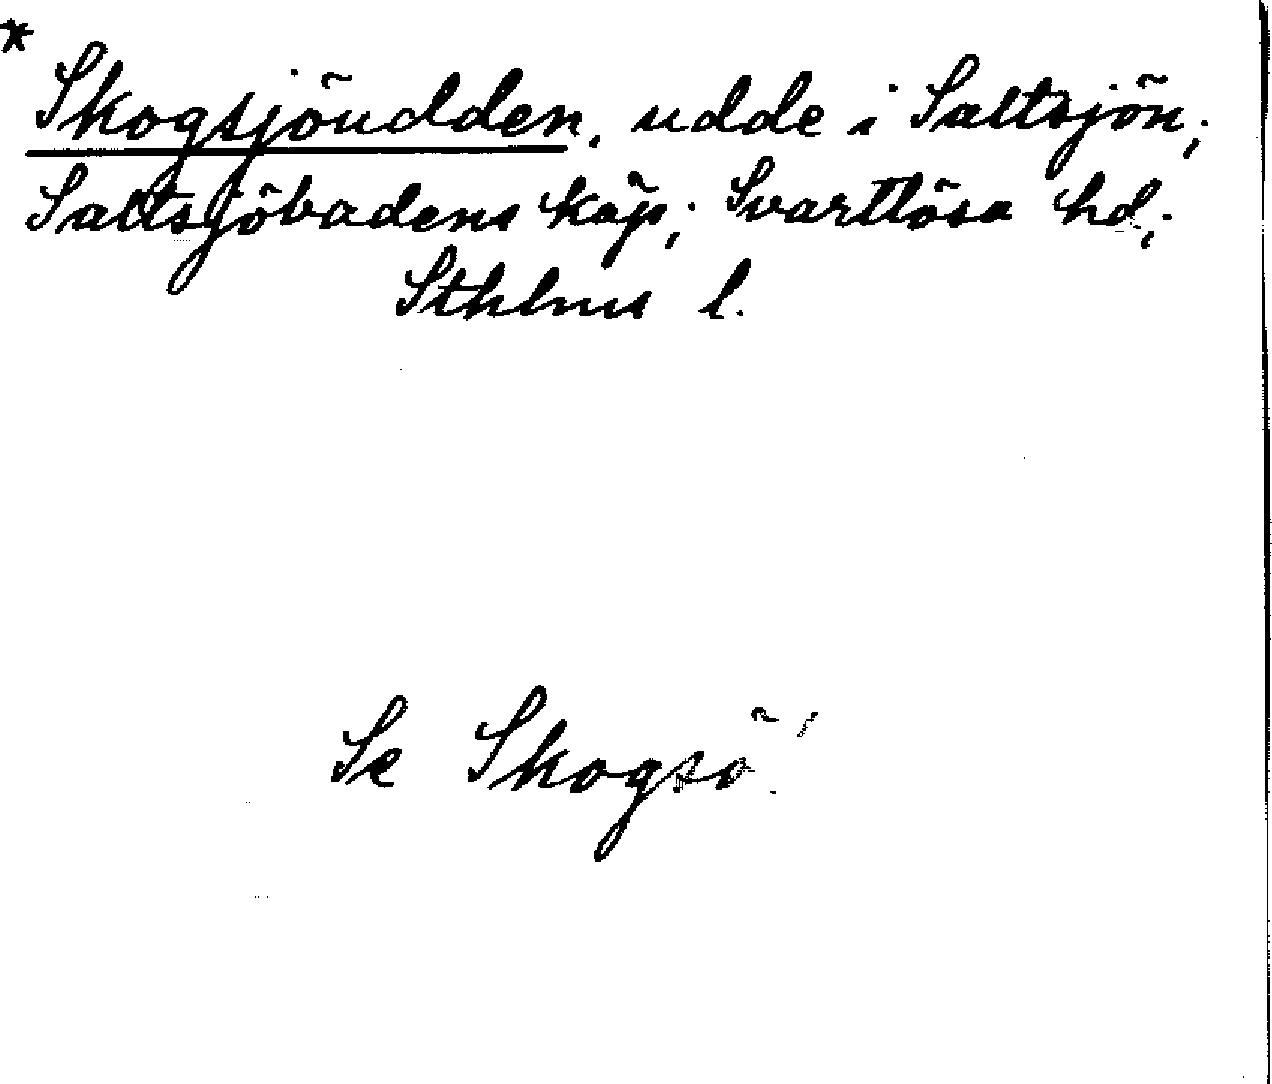 *
Skogsjöudden, udde i Saltsjön;
Saltsjöbadens köp; Svartlösa hd;
Sthlms l.
Se Skogsö!